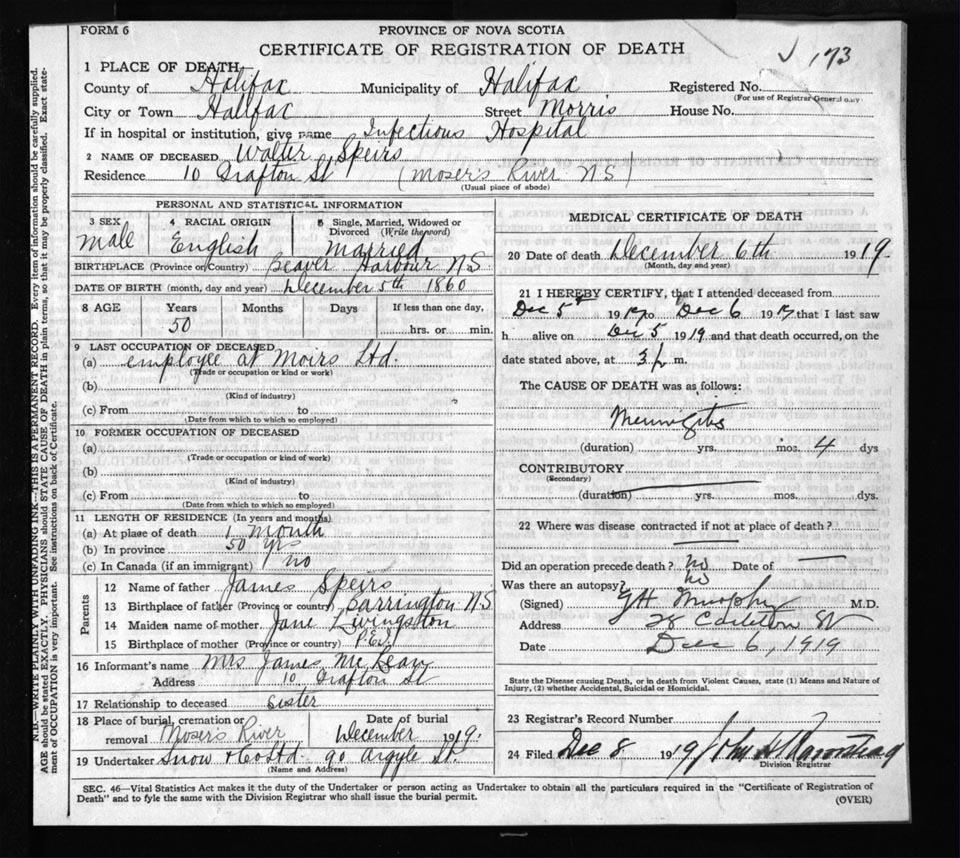 FORM 6
PROVINCE OF NOVA SCOTIA
CERTIFICATE OF REGISTRATION OF DEATH
173
1 PLACE OF DEATH
County of Halifax Municipality of Halifax Registered No.
(For use of Registrar General only)
City or Town Halifax Street Morris House No.
If in hospital or institution, give name Infectious Hospital
2 NAME OF DECEASED Walter Speirs
Residence 10 Grafton St (Moser's River NS)
(Usual place of abode)
PERSONAL AND STATISTICAL INFORMATION
3 SEX Male
4 RACIAL ORIGIN English
5 Single, Married, Widowed or Divorced (Write the word) Married
BIRTHPLACE (Province or Country) Beaver Harbour NS
DATE OF BIRTH (month, day and year) December 5th 1860
8 AGE Years 50 Months Days If less than one day, hrs. or min.
9 LAST OCCUPATION OF DECEASED
(a) employee at Moirs Ltd.
(Trade or occupation or kind or work)
(b)
(Kind of industry)
(c) From to
(Date from which to which so employed)
10 FORMER OCCUPATION OF DECEASED
(Trade or occupation or kind of work)
(b)
(Kind of industry)
(c) From to
(Date from which to which so employed)
11 LENGTH OF RESIDENCE (In years and months)
(a) At place of death 1 month
(b) In province 50 yrs
(c) In Canada (if an immigrant) no
Parents
12 Name of father James Speirs
13 Birthplace of father (Province or country) Barrington NS
14 Maiden name of mother Jane Livingston
15 Birthplace of mother (Province or country) P.E.I.
16 Informant's name Mrs James McLean
Address 10 Grafton St
17 Relationship to deceased sister
18 Place of burial, cremation or removal Moser's River Date of burial December 1919.
19 Undertaker Snow & Co Ltd. 90 Argyle St.
(Name and Address)
MEDICAL CERTIFICATE OF DEATH
20 Date of death December 6th 1919.
(Month, day and year)
21 I HEREBY CERTIFY, that I attended deceased from
Dec 5 19 to Dec 6 19 that I last saw
h alive on Dec 5 1919 and that death occurred, on the
date stated above, at 3 m.
The CAUSE OF DEATH was as follows:
Meningitis
(duration) yrs. mos. 4 dys
CONTRIBUTORY
(Secondary)
(duration) yrs. mos. dys.
22 Where was disease contracted if not at place of death?
Did an operation precede death? no Date of
Was there an autopsy? no
(Signed) GH Murphy M.D.
Address 28 Carleton St
Date Dec 6, 1919
State the Disease causing Death, or in death from Violent Causes, state (1) Means and Nature of
Injury, (2) whether Accidental, Suicidal or Homicidal.
23 Registrar's Record Number
24 Filed Dec 8 1919 John
Division Registrar
SEC. 46—Vital Statistics Act makes it the duty of the Undertaker or person acting as Undertaker to obtain all the particulars required in the "Certificate of Registration of
Death" and to fyle the same with the Division Registrar who shall issue the burial permit.
(OVER)
N.B.—WRITE PLAINLY, WITH UNFADING INK—THIS IS A PERMANENT RECORD. Every item of information should be carefully supplied.
AGE should be stated EXACTLY. PHYSICIANS should STATE CAUSE OF DEATH in plain terms, so that it may be properly classified. Exact state-
ment of OCCUPATION is very important. See instructions on back of Certificate.